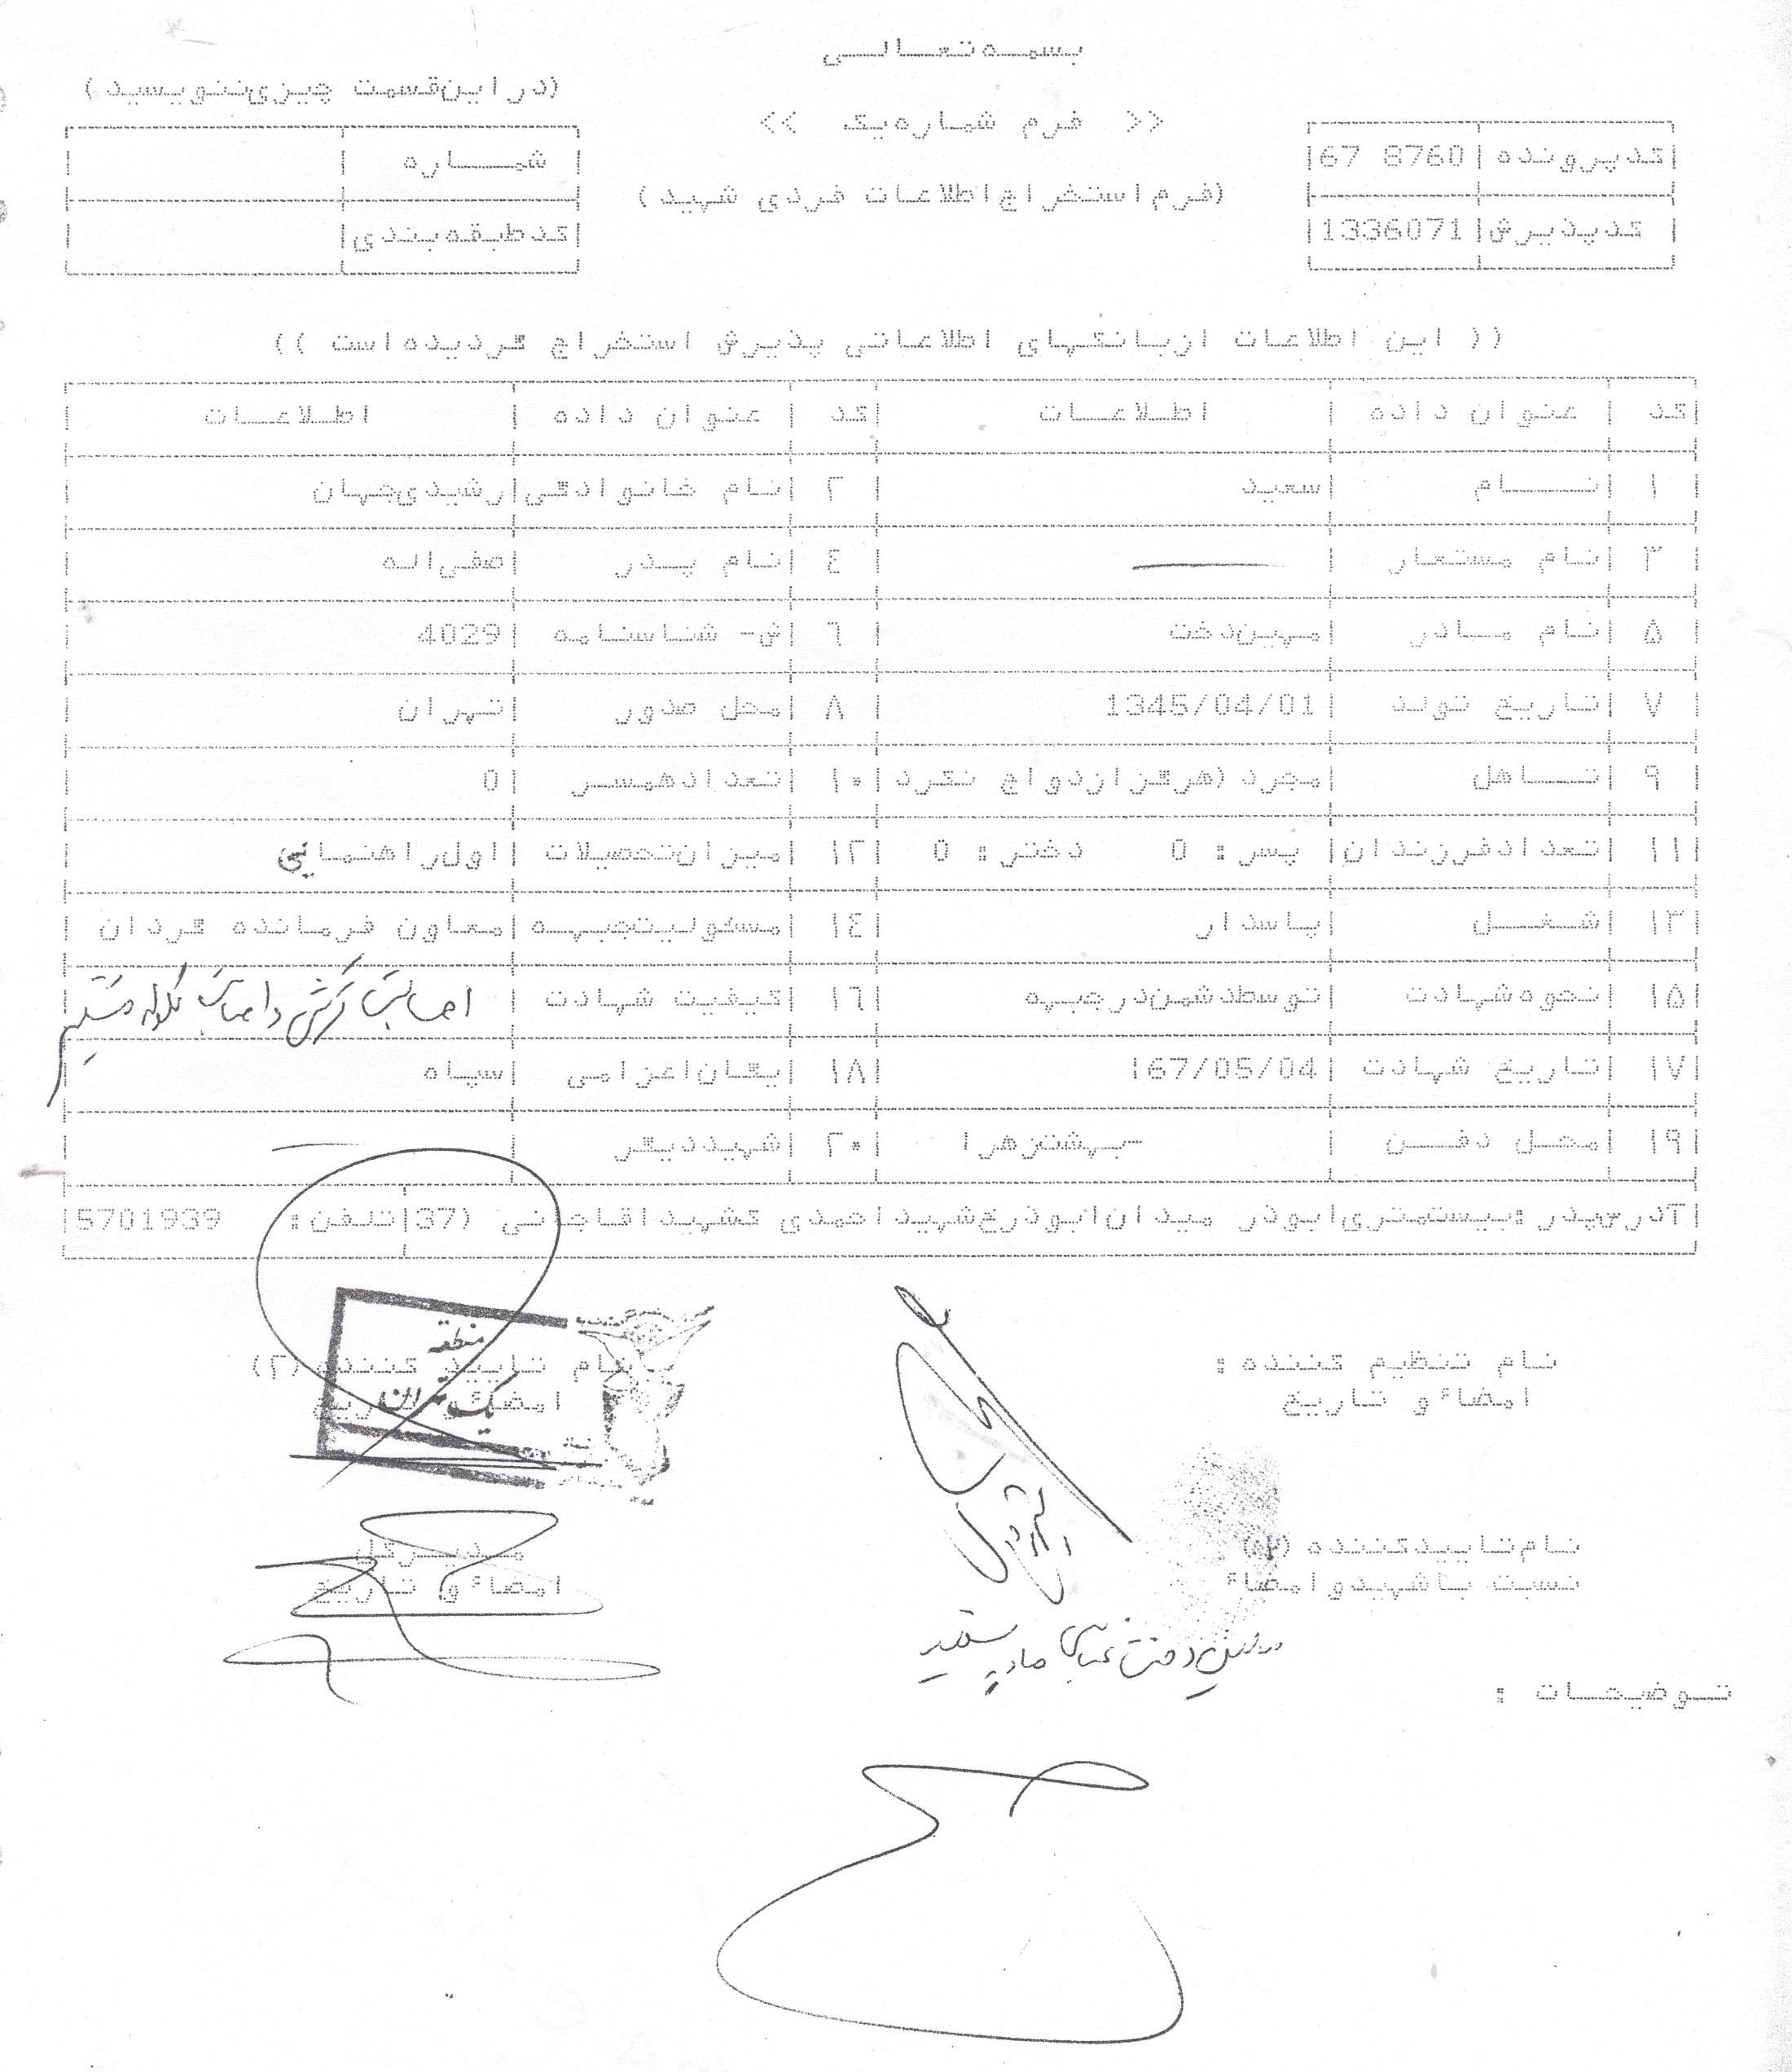 بسمه تعالی
(در این قسمت چیزی ننویسید)
<< فرم شماره یک >>
(فرم استخراج اطلاعات فردی شهید)
کد پرونده 67 8760
کد پذیرش 1336071
شماره
کد طبقه بندی
(( این اطلاعات از بانکهای اطلاعاتی پذیرش استخراج گردیده است ))
کد عنوان داده اطلاعات کد عنوان داده اطلاعات
۱ نام سعید ۲ نام خانوادگی رشیدی جهان
۳ نام مستعار ۴ نام پدر صفی اله
۵ نام مادر مهین دخت ۶ ش- شناسنامه 4029
۷ تاریخ تولد 1345/04/01 ۸ محل صدور تهران
۹ تاهل مجرد (هرگز ازدواج نکرد ۱۰ تعداد همسر 0
۱۱ تعداد فرزندان پسر: 0 دختر: 0 ۱۲ میزان تحصیلات اول راهنمایی
۱۳ شغل پاسدار ۱۴ مسئولیت جبهه معاون فرمانده گردان
۱۵ نحوه شهادت توسط دشمن در جبهه ۱۶ کیفیت شهادت اصابت ترکش و اصابت گلوله مستقیم
۱۷ تاریخ شهادت 67/05/04 ۱۸ یگان اعزامی سپاه
۱۹ محل دفن بهشت زهرا ۲۰ شهید دیگر
آدرس پدر: بیست متری ابوذر میدان ابوذر خ شهید احمدی ک شهید اقاجانی (37 تلفن: 5701939
نام تنظیم کننده:
امضاء و تاریخ
نام تایید کننده (۲)
امضاء و تاریخ
منطقه
یک تهران
نام تایید کننده
نسبت با شهید و امضاء
مهین دخت مادر شهید
مدیر کل
امضاء و تاریخ
توضیحات :